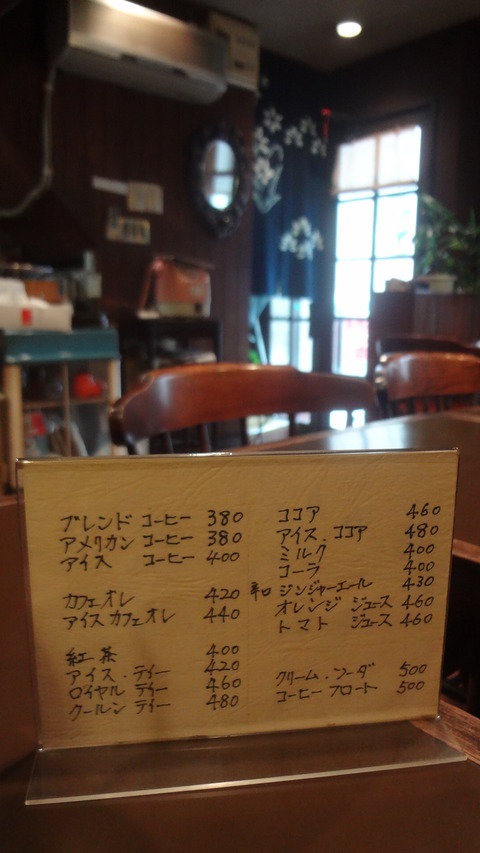 ブレンド コーヒー 380
アメリカン コーヒー 380
アイス コーヒー 400
カフェオレ 420
アイスカフェオレ 440
紅茶 400
アイス.ティー 420
ロイヤル ティー 460
クールン ティー 480
ココア 460
アイス.ココア 480
ミルク 400
コーラ 400
辛口 ジンジャーエール 430
オレンジ ジュース 460
トマト ジュース 460
クリーム.ソーダ 500
コーヒー フロート 500